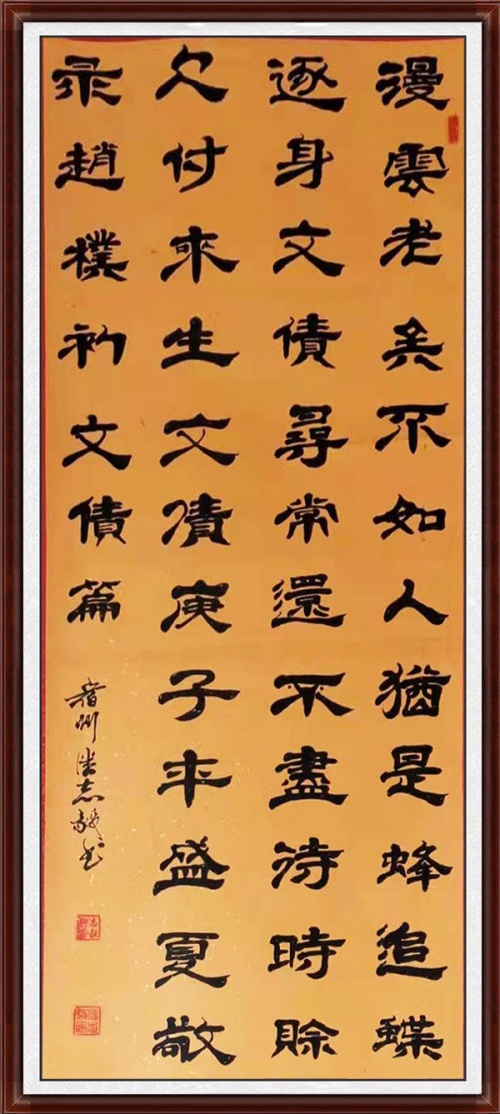 漫雲老矣不如人猶是蜂追蝶
逐身文債尋常還不盡待時賒
欠付來生文債庚子年盛夏敬
录趙樸初文債篇
州志书